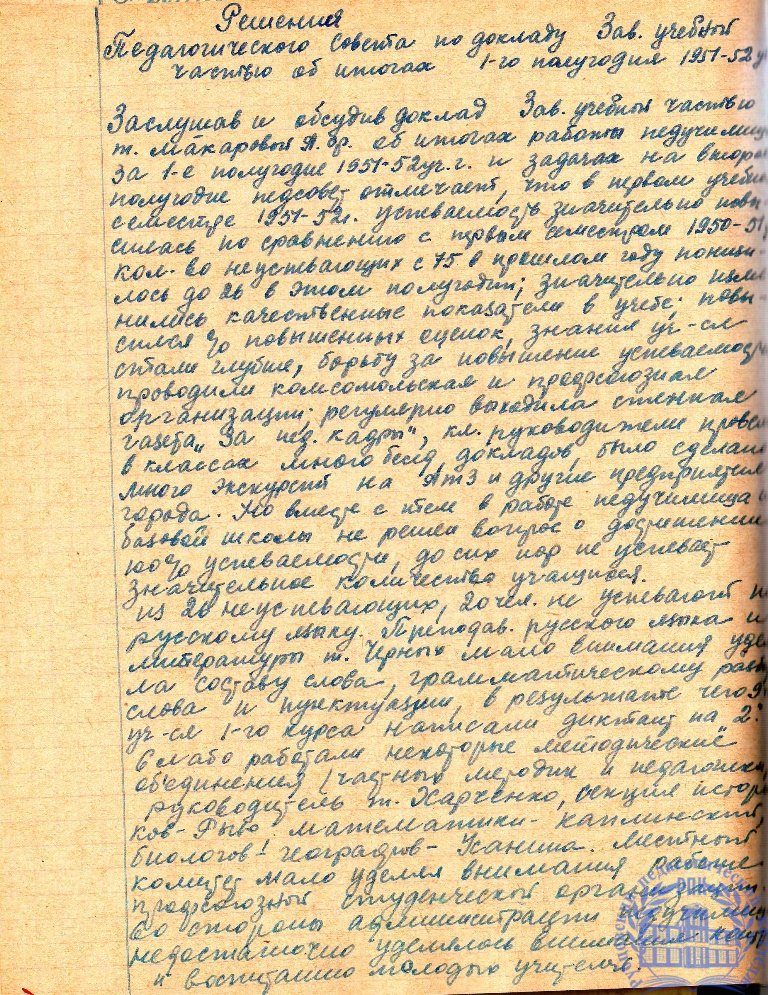 Решения
Педагогического совета по докладу Зав. учебной
частью об итогах 1-го полугодия 1951-52 у
Заслушав и обсудив доклад Зав. учебной частью
т. Макаровой об итогах работы педучилищ
за 1-е полугодие 1951-52 уч. г. и задачах на второ
полугодие педсовет отмечает, что в первом учебно
семестре 1951-52г. успеваемость значительно повы-
силась по сравнению с первым семестром 1950-51
кол-во неуспевающих с 75 в прошлом году понизи-
лось до 26 в этом полугодии; значительно изме
нились качественные показатели в учебе: повы-
сился % повышенных оценок, знания уч-ся
стали глубже, борьбу за повышение успеваемости
проводили комсомольская и профсоюзная
организации: регулярно выходила стенная
газета „За пед. кадры", кл. руководители провел
в классах много бесед, докладов, было сделано
много экскурсий на АТЗ и другие предприятия
города. Но вместе с тем в работе педучилища и
базовой школы не решен вопрос о достижении
100% успеваемости, до сих пор не успевает
значительное количество учащихся.
Из 26 неуспевающих, 20 чел. не успевают п
русскому языку. Преподав. русского языка и
литературы т. Черных мало внимания уде
ла составу слова, грамматическому разб
слова и пунктуации, в результате чего 9
уч-ся 1-го курса написали диктант на „2".
Слабо работали некоторые методические
объединения /частных методик и педагогики,
руководитель т. Харченко, секция истори
ков- математики- Каплинский,
биологов-географов- Ханина. Местный
комитет мало уделял внимания работе
профсоюзной студенческой организации.
Со стороны администрации педучилищ
недостаточно уделялось внимания
и воспитанию молодых учителей.